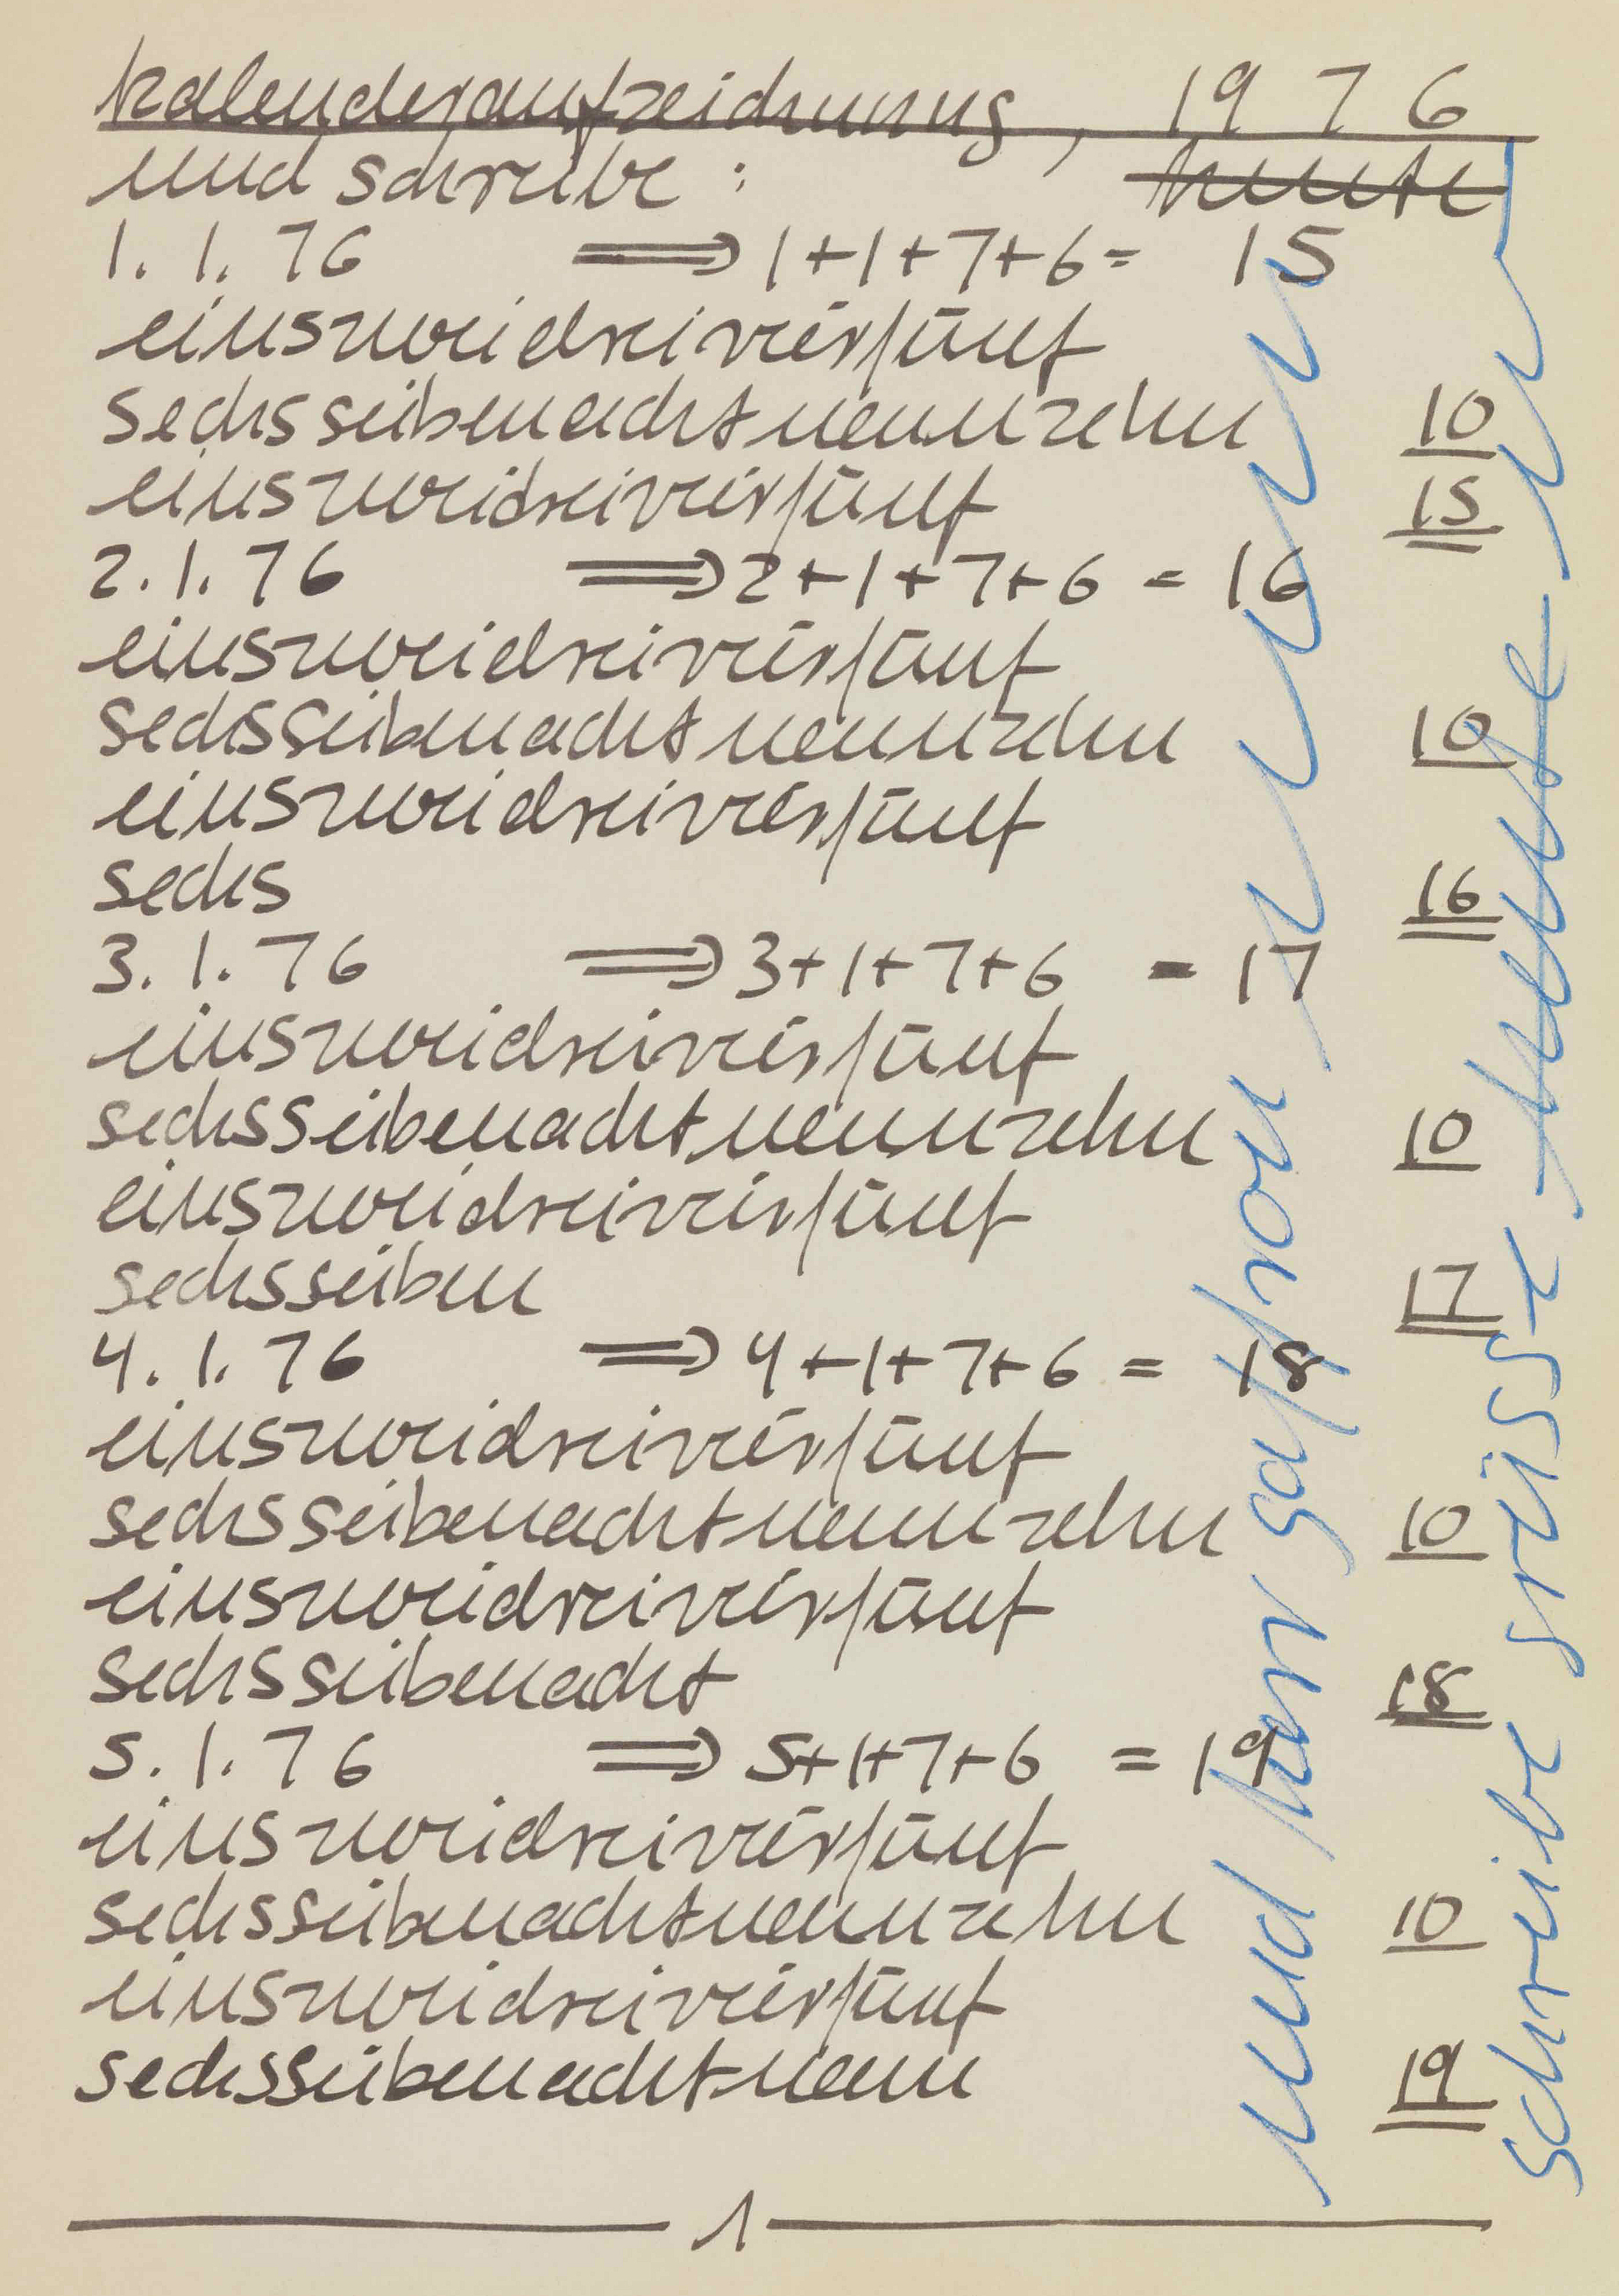 Kalenderaufzeichnung, 1976
und schreibe : heute
1.1.76 ⟹ 1+1+7+6= 15
einszweidreivierfünf
sechssiebenachtneunzehn 10
einszweidreivierfünf 15
2.1.76 ⟹ 2+1+7+6 = 16
einszweidreivierfünf
sechssiebenachtneunzehn 10
einszweidreivierfünf
sechs 16
3.1.76 ⟹ 3+1+7+6 = 17
einszweidreivierfünf
sechssiebenachtneunzehn 10
einszweidreivierfünf
sechssieben 17
4.1.76 ⟹ 4+1+7+6 = 18
einszweidreivierfünf
sechssiebenachtneunzehn 10
einszweidreivierfünf
sechssiebenacht 18
5.1.76 ⟹ 5+1+7+6 = 19
einszweidreivierfünf
sechssiebenachtneunzehn 10
einszweidreivierfünf
sechssiebenachtneun 19
1
und gaffron
schreibe grüsse heute